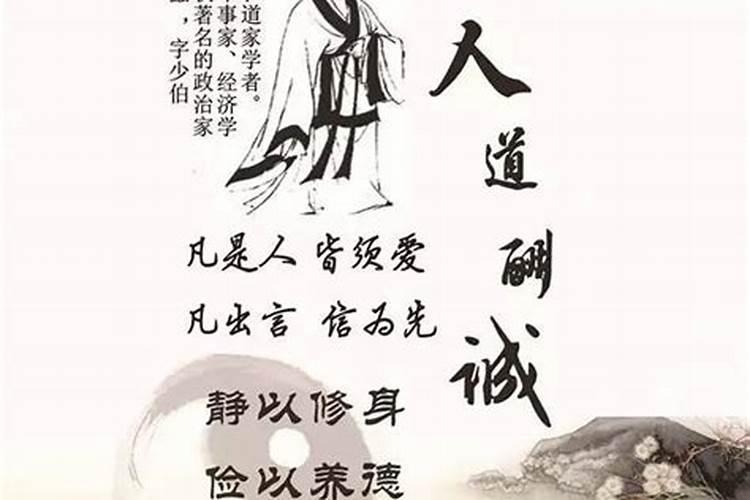 ，字少伯
著名的政治家
事家、经济学
道家学者。
人道酬诚
凡是人 皆须爱
凡出言 信为先
静以修身
俭以养德